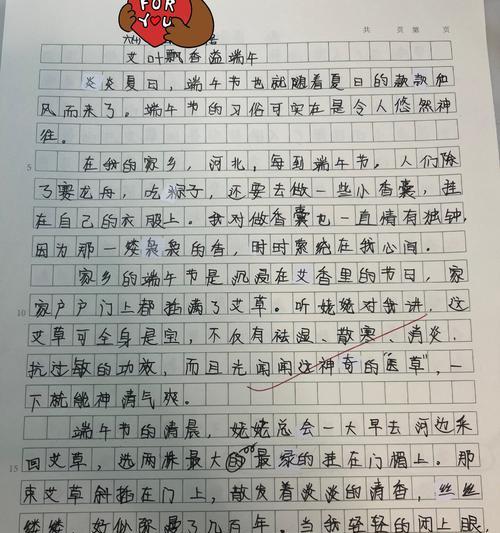 FOR
YOU
共 页 第 页
艾叶飘香溢端午
炎炎夏日，端午节也就随着夏日的款款和
风而来了。端午节的习俗可实在是令人悠然神
往。
5
在我的家乡，河北，每到端午节，人们除
了赛龙舟，吃粽子，还要去做一些小香囊，挂
在自己的衣服上。我对做香囊也一直情有独钟，
因为那一缕袅袅的香，时时萦绕在我心间。
家乡的端午节是沉浸在艾香里的节日，家
10
家户户门上都插满了艾草。听姥姥对我讲，这
艾草可全身是宝，不仅有祛湿、散寒、消炎、
抗过敏的功效，而且光闻闻这神奇的“医草”，一
下就能神清气爽。
端午节的清晨，姥姥总会一大早去河边采
15
回艾草，选两株最大的最绿的挂在门楣上。那
束艾草斜插在门上，散发着淡淡的清香，丝丝
缕缕，好似弥漫了几百年。当我轻轻的闭上眼